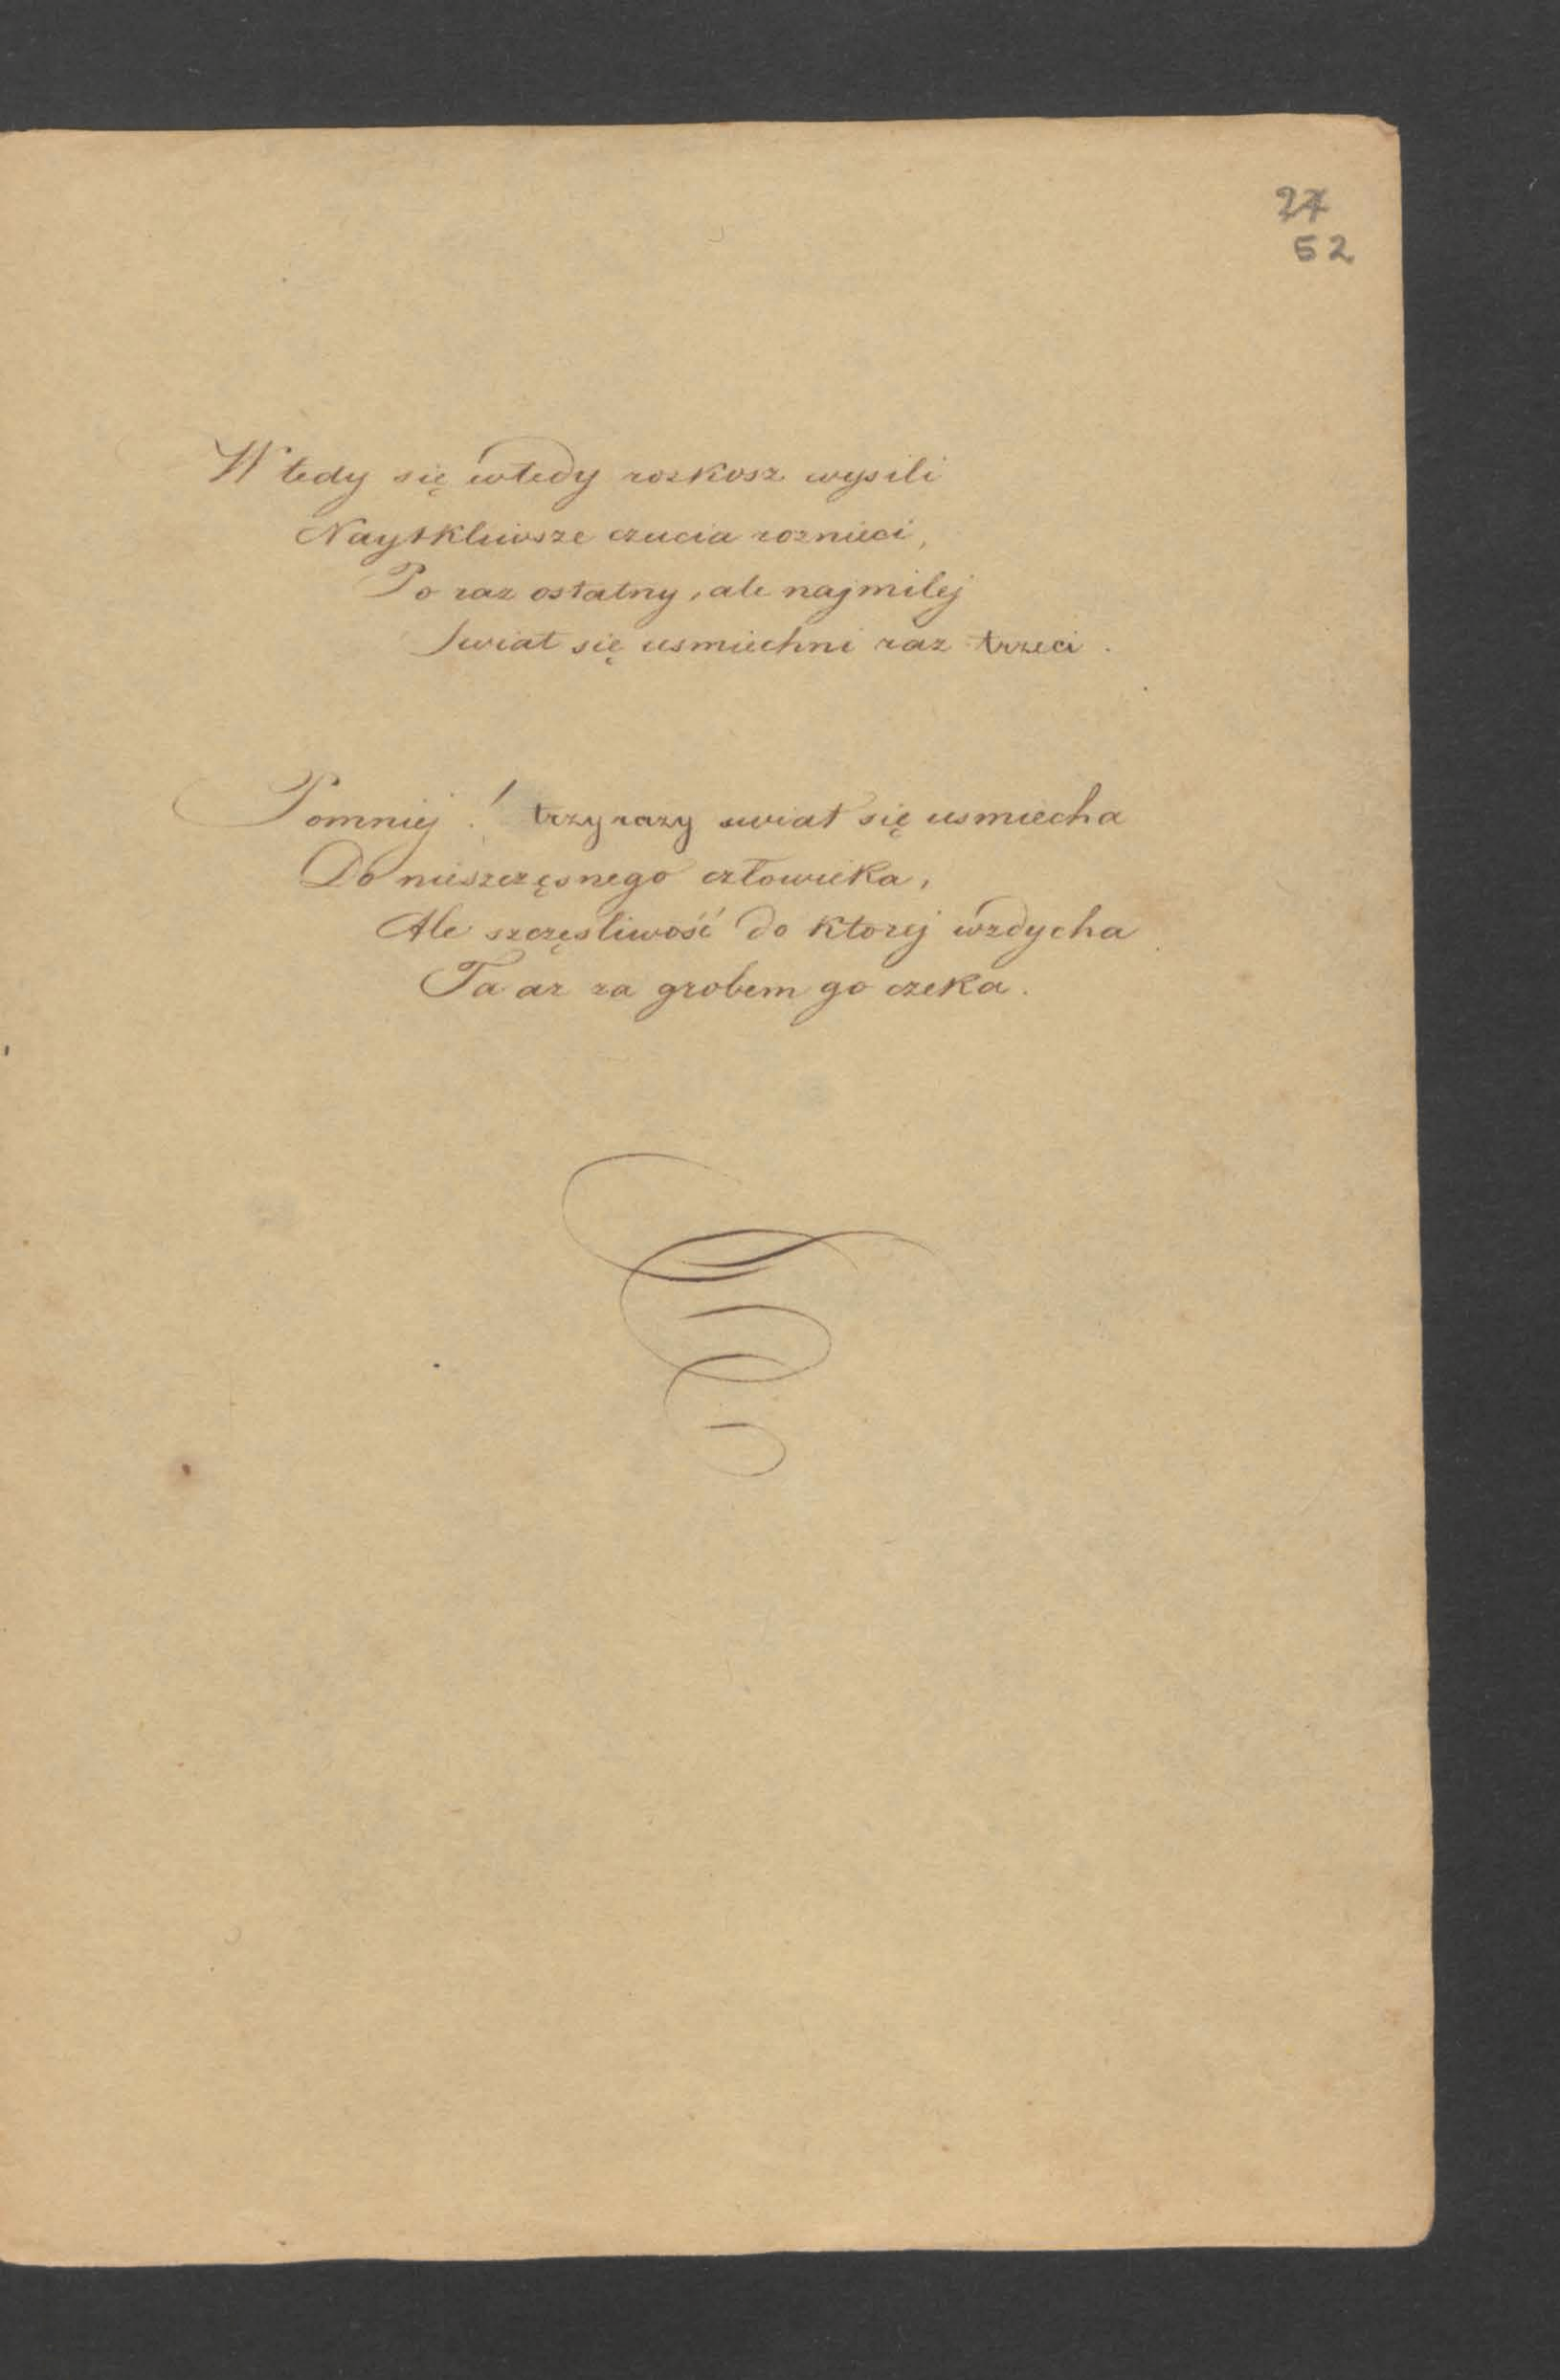 27
52
Wtedy się wtedy roskosz wysili
Naytkliwsze czucia roznieci,
Po raz ostatny, ale najmilej
Swiat się usmiechni raz trzeci.
Pomniej! trzy razy swiat się usmiecha
Do nieszczęsnego człowieka,
Ale szczęsliwość do ktorej wzdycha
Ta az za grobem go czeka.